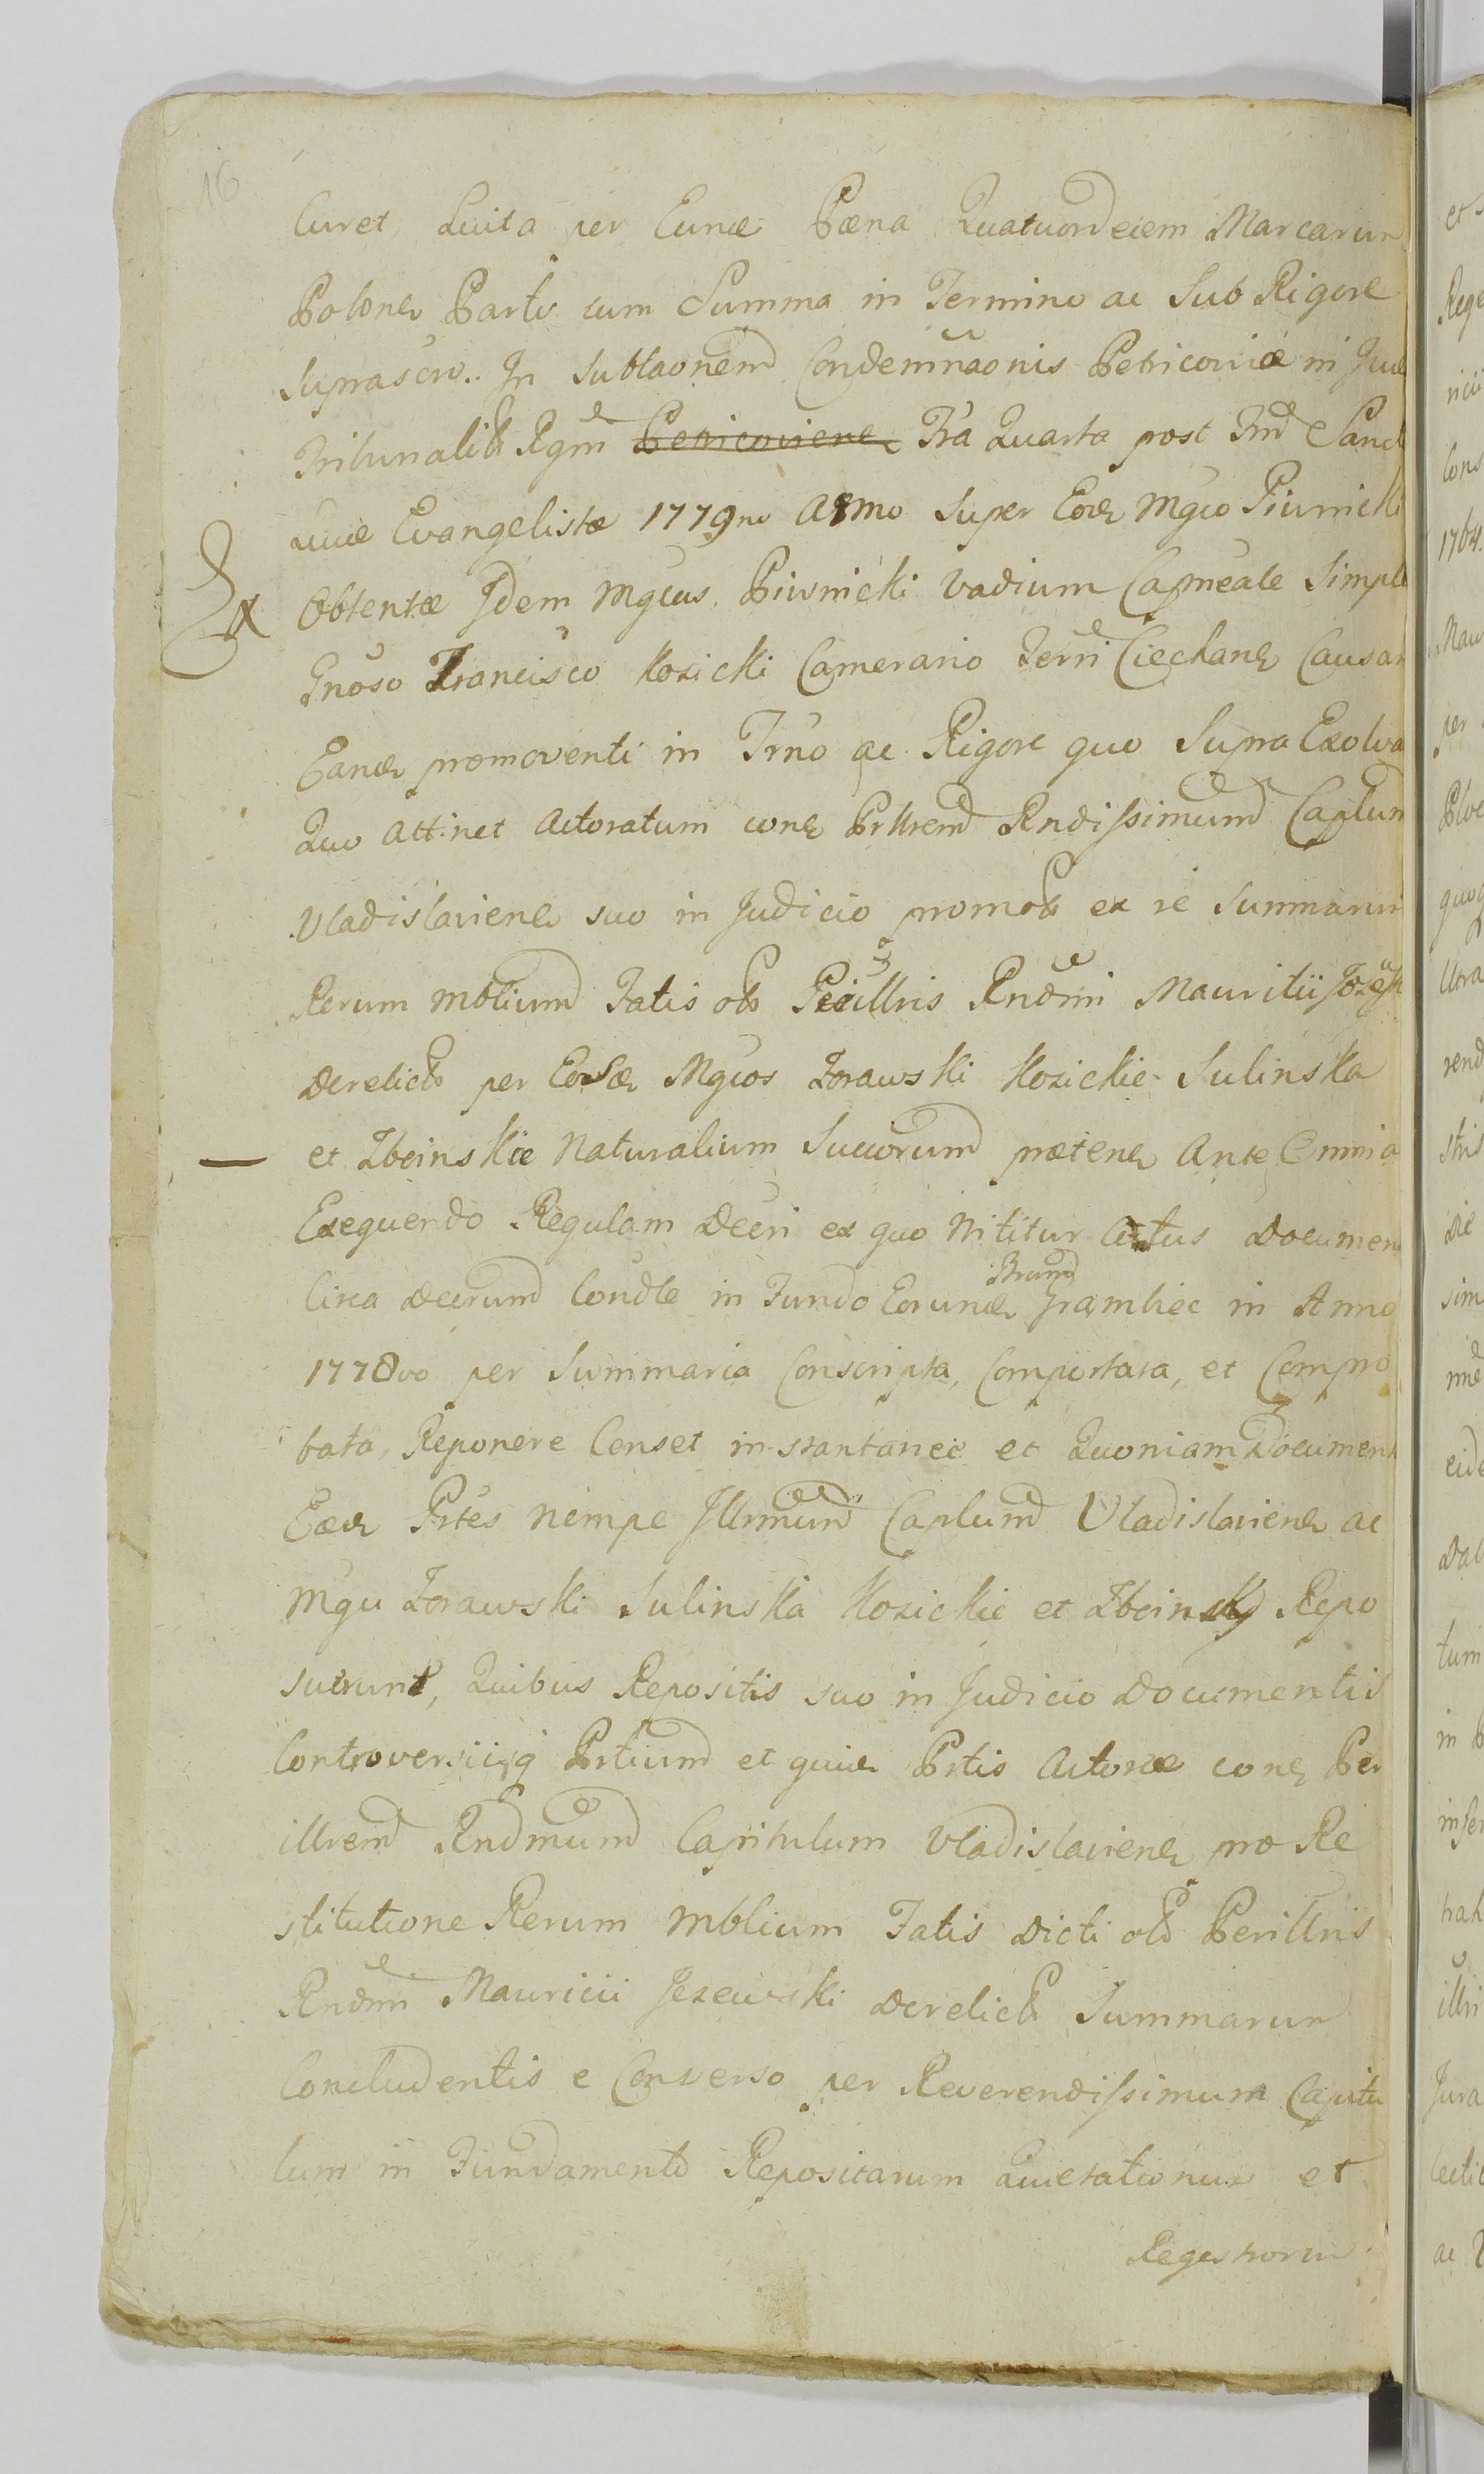 16
Curet, Luita per Eund Pæna Quatuordeciem Marcarum
Polone Parti cum Summa in Termino ac Sub Rigore
suprascr. In sublaonem Condemnaonis Petricoviæ in Jud
Tribunalib Rgni Petricoviene Fra Quarta post Fm Sanct
Lucæ Evangelistæ 1779no Anno super Eod Mgco Piwnicki
Obtentæ Idem Mgcus Piwnicki vadium Capneale Simple
Gnoso Francisco Kozicki Camerario Terri Ciechane Causam
Eand promoventi in Trno ac Rigore quo Supra Exolva
Quo attinet Actoratum cone Prllrem Rndissimum Caplum
Vladislaviene suo in Judicio promot ex re Summarum
Rerum mblium Fatis ob Perillris Rndmi Mauritii Jeze
derelict per Eosd Mgcos Zorawski Kozickie Sulinska
et Zboinskie Naturalium Succorum prætene Ante Omnia
Exequendo Regulam Decri ex quo Nititur Actus Documen
Circa Decrum Condle in Fundo Eorund Bnorum Grambiec in Anno
1778vo per Summaria Conscripta, Comportata, et Compro
bata, Reponere Censet in stantanee et Quoniam Document
Eæd Prtes nempe Illrmum Caplum Vladislaviene ac
Mgci Zorawski Sulinska Kozickie et Zboinsky Repo
suerunt, Quibus Repositis suo in Judicio Documentis
Controversiisq Prtium et quid Prtis Actoræ cone Per
illrem Rndmum Capitulum Vladislaviene pro Re
stitutione Rerum mblium Fatis dicti ob Perillris
Rndmi Mauricii Jezewski derelict Summarum
Concludentis e Converso per Reverendissimum Capitu
lum in Fundamento Repositarum Quietationum et
Regestrorum